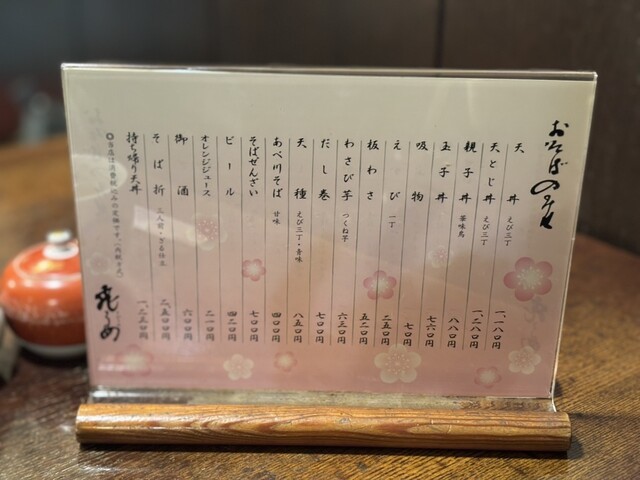 おそばの
天丼 えび三丁 一、一八〇円
天とじ丼 えび三丁 一、二八〇円
親子丼 華味鳥 八八〇円
玉子丼 七六〇円
吸物 七〇円
えび 一丁 二五〇円
板わさ 五二〇円
わさび芋 つくね芋 六三〇円
だし巻 七〇〇円
天種 えび三丁・青味 八五〇円
あべ川そば 甘味 四〇〇円
そばぜんざい 七〇〇円
ビール 四二〇円
オレンジジュース 二一〇円
御酒 六〇〇円
そば折 二、五〇〇円
持ち帰り天丼 一、二三〇円
◎当店は消費税込みの定価です。